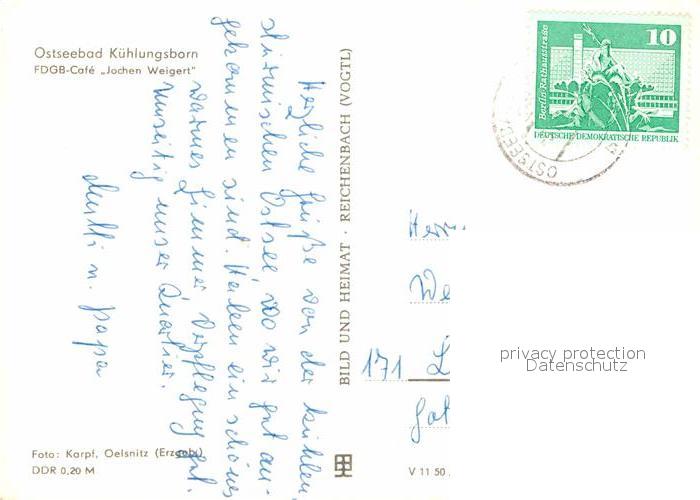 Ostseebad Kühlungsborn
FDGB-Café „Jochen Weigert"
Herzliche Grüße von der kühlen
stürmischen Ostsee, wo wir gut an-
gekommen sind. Haben ein schönes
warmes Zimmer Verpflegung gut.
unser Quartier.
Mutti u. Papa
BILD UND HEIMAT · REICHENBACH (VOGTL)
Foto: Karpf, Oelsnitz (Erzgeb)
DDR 0,20 M
V 11 50
10
Berlin, Rathausstraße
DEUTSCHE DEMOKRATISCHE REPUBLIK
OSTSEEB
Herrn
We
171 L
Got
privacy protection
Datenschutz